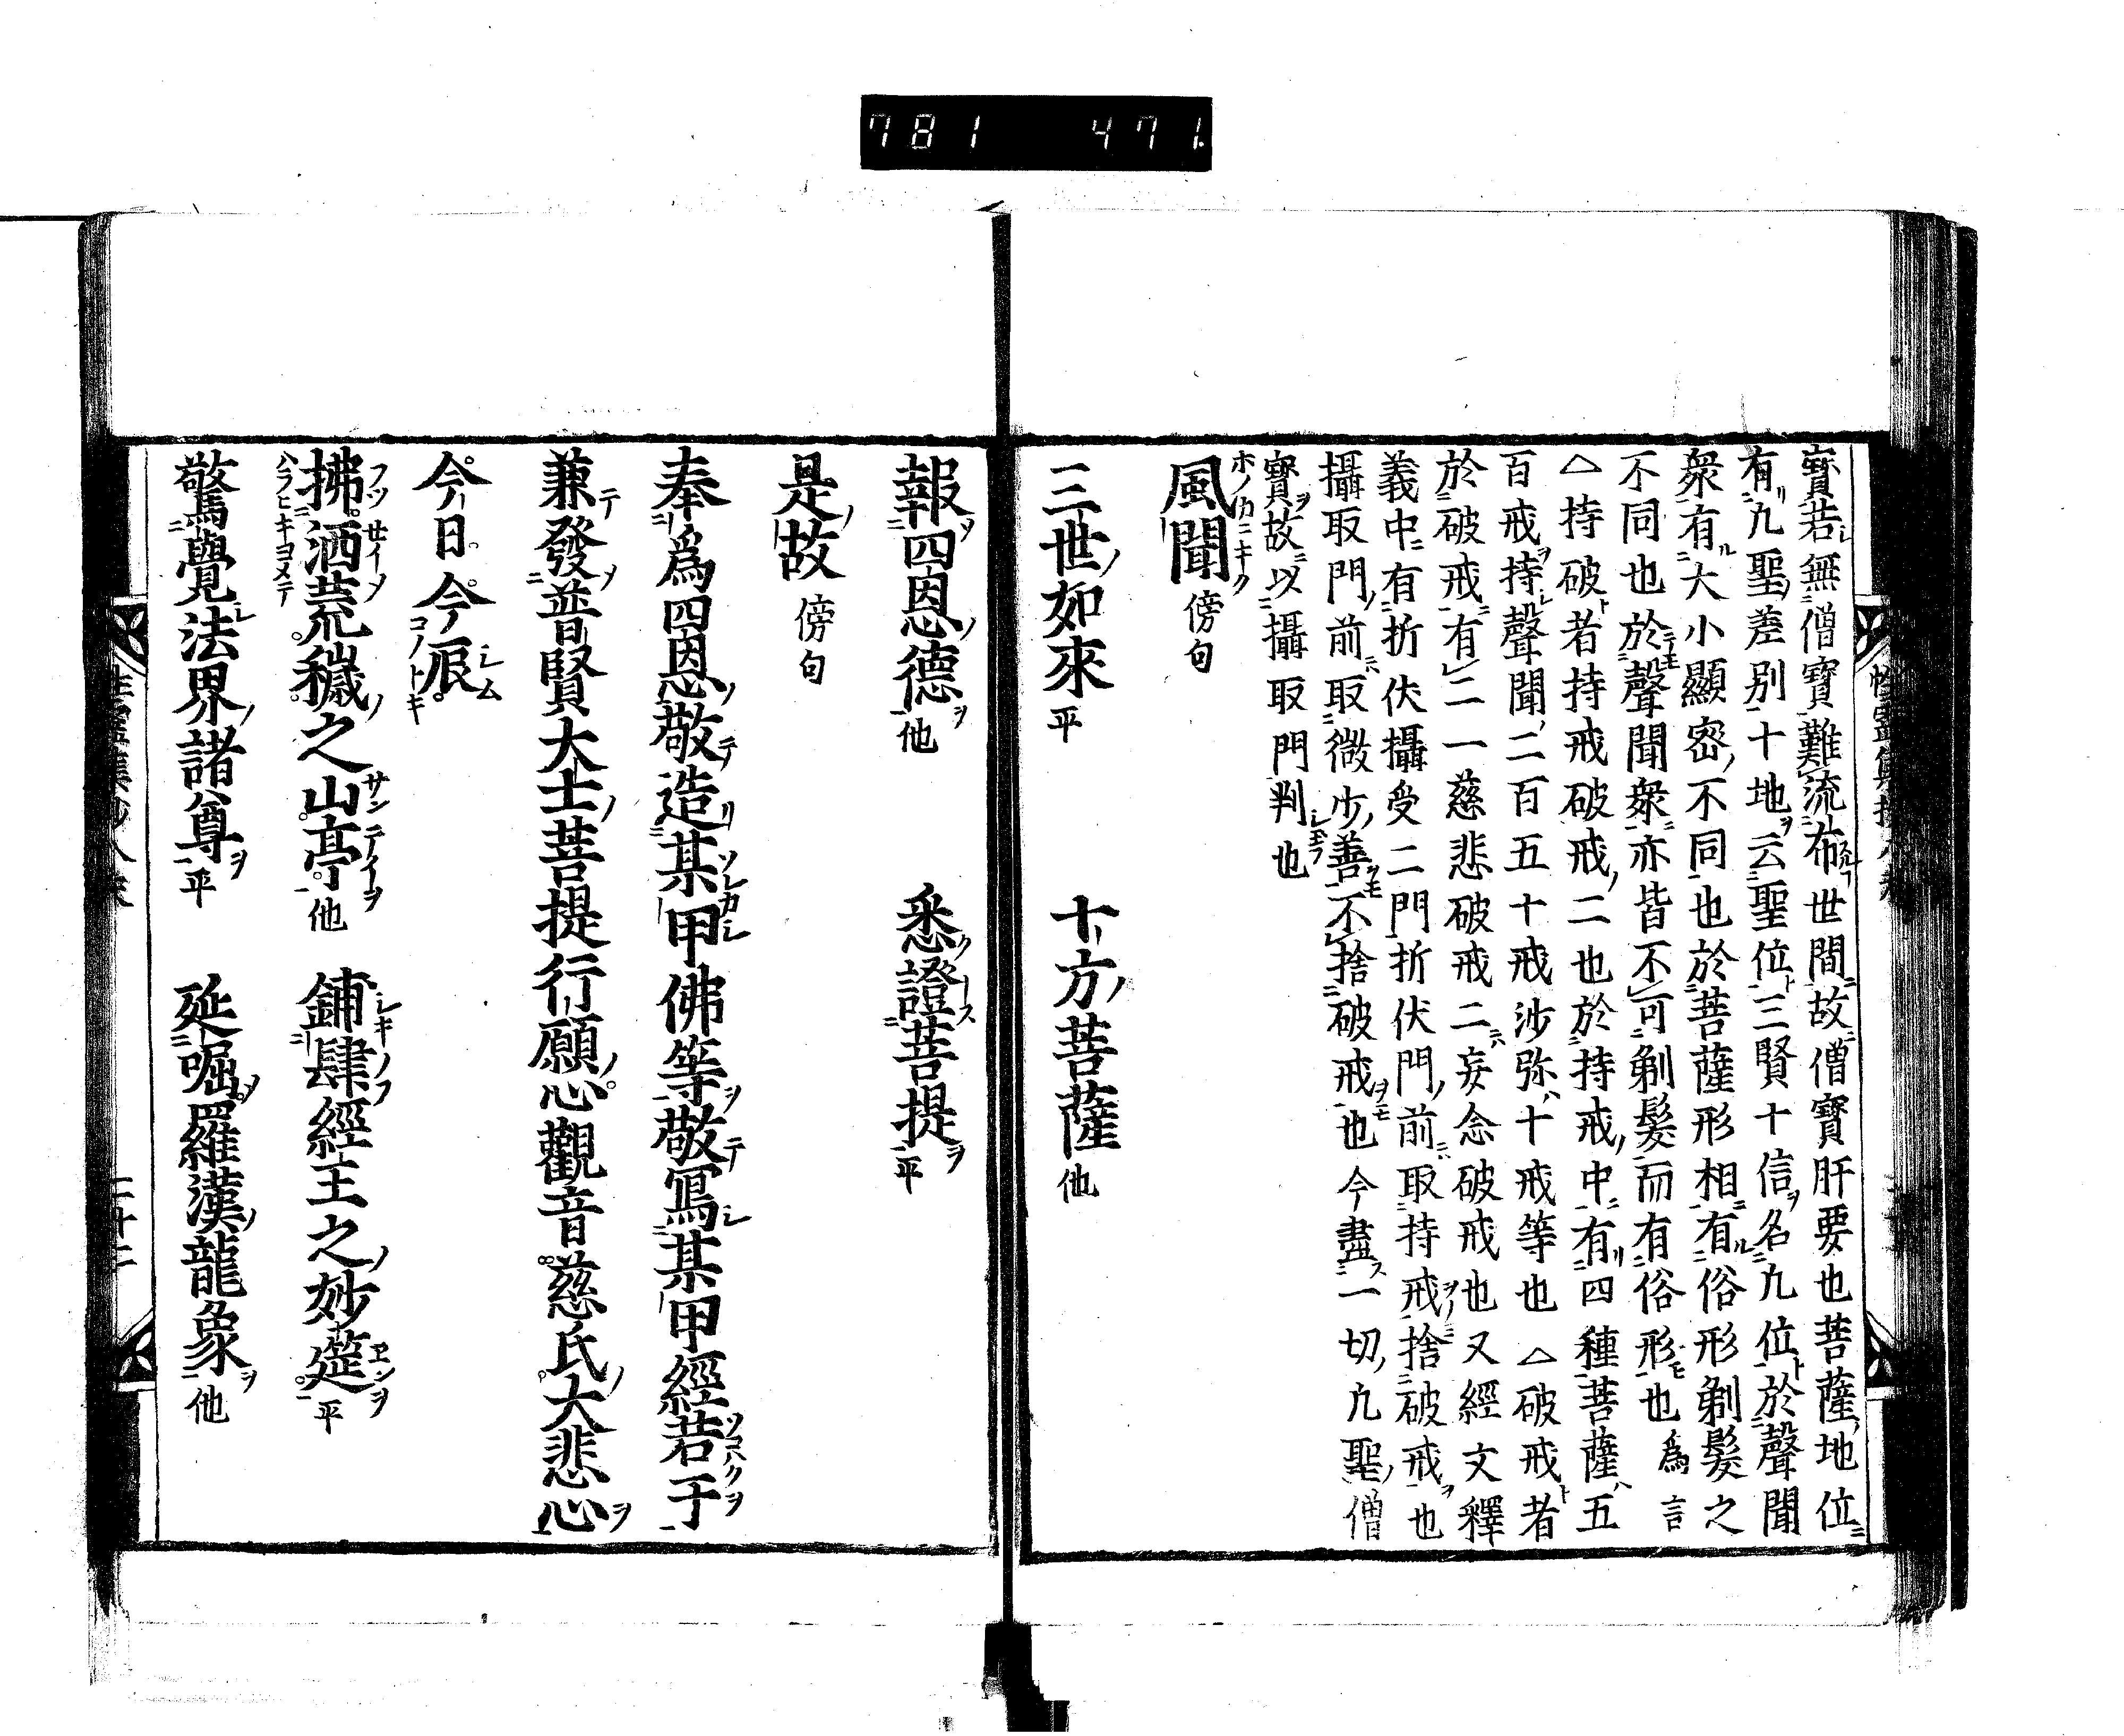 781 471.
寳若無僧寶難流布世間故僧寳肝要也菩薩地位
有九聖差别十地云聖位三賢十信名九位於聲聞
衆有大小顯密不同也於菩薩形相有俗形剃髪之
不同也於聲聞衆亦皆不可剃髪而有俗形也爲言
△持破者持戒破戒二也於持戒中有四種菩薩五
百戒持聲聞二百五十戒沙弥十戒等也△破戒者
於破戒有二一慈悲破戒二妄念破戒也又經文釋
義中有折伏攝受二門折伏門前取持戒捨破戒也
攝取門前取微少善不捨破戒也今盡一切凢聖僧
寳故以攝取門判也
風聞 傍句
三世如來 平 十方菩薩 他
報四恩德 他 悉證菩提 平
是故 傍句
奉爲四恩敬造某甲佛等敬寫某甲經若于
兼發普賢大士菩提行願心觀音慈氏大悲心
今日今辰
拂洒荒穢之山亭 他 鋪肆經王之妙莚 平
驚覺法界諸尊 平 延嘔羅漢龍象 他